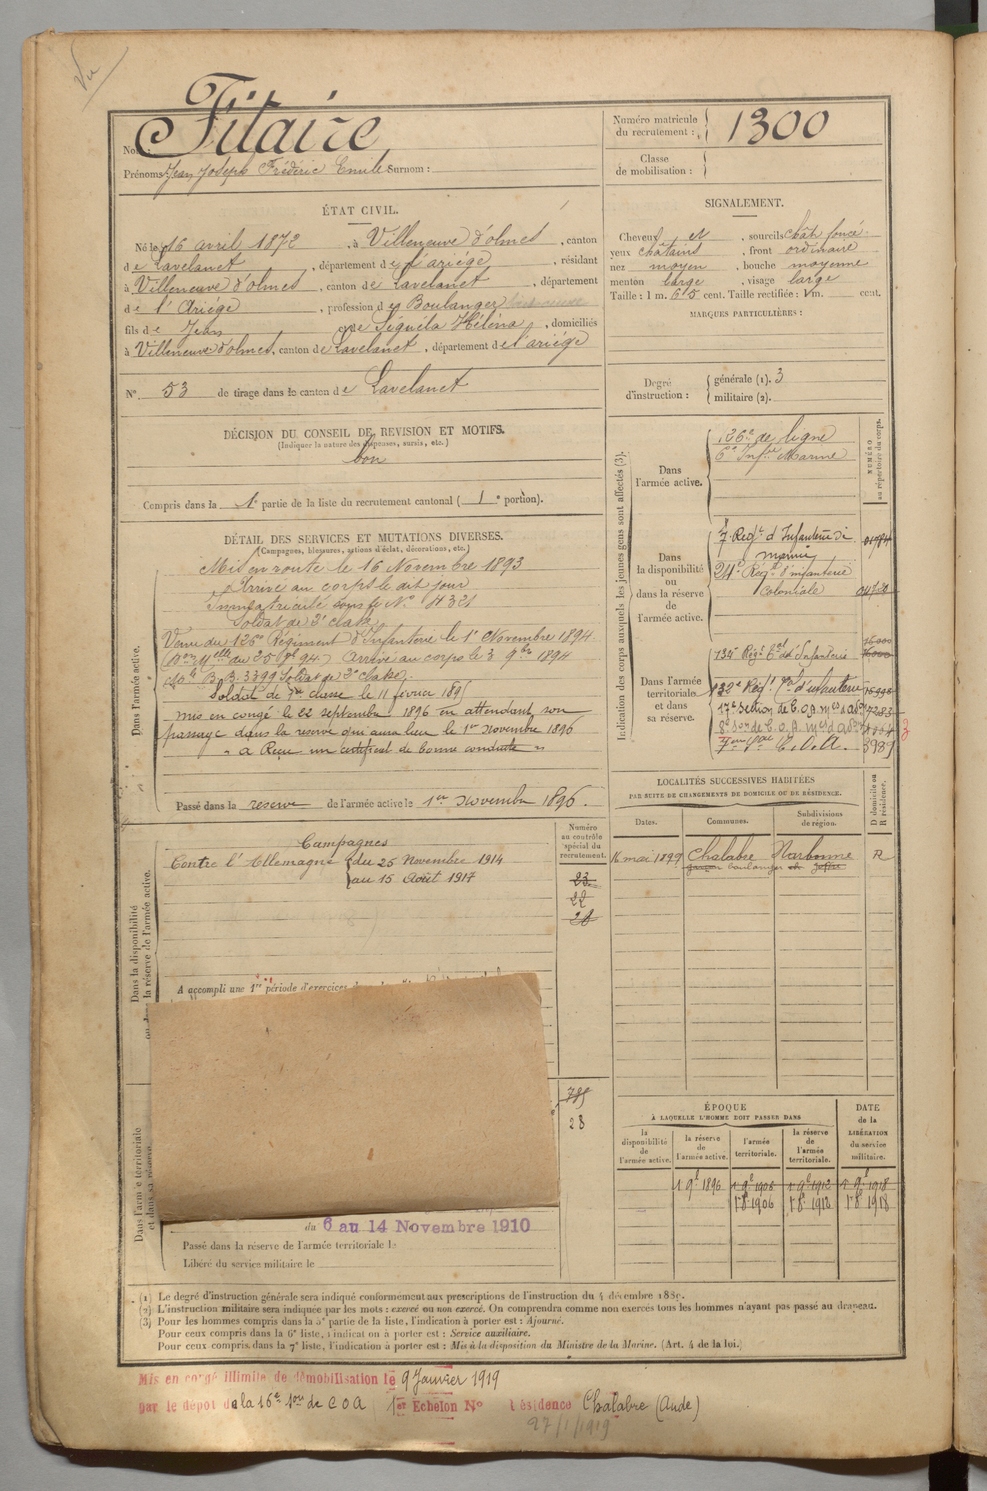 Vu
Nom : Fitaire
Prénoms : Jean Joseph Frédéric Emile Surnom :
Numéro matricule du recrutement : 1300
Classe de mobilisation :
ÉTAT CIVIL.
Né le 16 avril 1872, à Villeneuve d'olmes, canton
de Lavelanet, département de l'ariège, résidant
à Villeneuve d'olmes, canton de Lavelanet, département
de l'Ariège, profession de Boulanger
fils de Jean et de Séguéla Héléna, domiciliés
à Villeneuve d'olmes, canton de Lavelanet, département de l'ariège
N° 53 de tirage dans le canton de Lavelanet
SIGNALEMENT.
Cheveux et, sourcils chât. foncé
yeux châtains, front ordinaire
nez moyen, bouche moyenne
menton large, visage large
Taille : 1 m. 65 cent. Taille rectifiée : 1m. cent.
MARQUES PARTICULIÈRES :
Degré d'instruction : générale (1). 3
militaire (2).
DÉCISION DU CONSEIL DE REVISION ET MOTIFS.
(Indiquer la nature des dispenses, sursis, etc.)
bon
Compris dans la 1e partie de la liste du recrutement cantonal (1e portion).
DÉTAIL DES SERVICES ET MUTATIONS DIVERSES.
(Campagnes, blessures, actions d'éclat, décorations, etc.)
Dans l'armée active.
Mis en route le 16 Novembre 1893
Arrivé au corps le dit jour
Immatriculé sous le N° 4321
Soldat de 2e classe
Venu du 126e Régiment d'Infanterie le 1er Novembre 1894
Arrivé au corps le 3 9bre 1894
3399 Soldat de 2e classe.
Soldat de 1ère classe le 11 février 1895
mis en congé le 22 septembre 1896 en attendant son
passage dans la réserve qui aura lieu le 1er novembre 1896
" a Reçu un certificat de bonne conduite "
Passé dans la réserve de l'armée active le 1er novembre 1896.
Indication des corps auxquels les jeunes gens sont affectés (3).
NUMÉRO au répertoire du corps.
Dans l'armée active.
126e de ligne
6e Infrie Marine
Dans la disponibilité ou dans la réserve de l'armée active.
7 Regt d'Infanterie de
marine
24e Régt d'infanterie
Coloniale
Dans l'armée territoriale et dans sa réserve.
134e Régt tal d'Infanterie
132e Regt tal d'infanterie
17e Section de C.O.A.
C.O.A.
3989
LOCALITÉS SUCCESSIVES HABITÉES
PAR SUITE DE CHANGEMENTS DE DOMICILE OU DE RÉSIDENCE.
D domicile ou R résidence.
Dates. Communes. Subdivisions de région.
16 mai 1899 Chalabre Narbonne R
Numéro au contrôle spécial du recrutement.
23
22
28
Dans la disponibilité ou dans la réserve de l'armée active.
Campagnes
Contre l'Allemagne du 25 Novembre 1914
au 15 Août 1917
A accompli une 1re période d'exercices
785
28
Dans l'armée territoriale et dans sa réserve.
du 6 au 14 Novembre 1910
Passé dans la réserve de l'armée territoriale le
Libéré du service militaire le
ÉPOQUE
À LAQUELLE L'HOMME DOIT PASSER DANS
DATE de la LIBÉRATION du service militaire.
la disponibilité de l'armée active. la réserve de l'armée active. l'armée territoriale. la réserve de l'armée territoriale.
1 9b 1896 1 9b 1906 1 9b 1912 1 9b 1918
1 8b 1906 1 8b 1912 1 8b 1918
(1) Le degré d'instruction générale sera indiqué conformément aux prescriptions de l'instruction du 4 décembre 1889.
(2) L'instruction militaire sera indiquée par les mots : exercé ou non exercé. On comprendra comme non exercés tous les hommes n'ayant pas passé au drapeau.
(3) Pour les hommes compris dans la 5e partie de la liste, l'indication à porter est : Ajourné.
Pour ceux compris dans la 6e liste, l'indication à porter est : Service auxiliaire.
Pour ceux compris dans la 7e liste, l'indication à porter est : Mis à la disposition du Ministre de la Marine. (Art. 4 de la loi.)
Mis en congé illimité de démobilisation le 9 Janvier 1919
par le dépôt de la 16e Son de C O A 1er Echelon N° résidence Chalabre (Aude)
27/1/1919